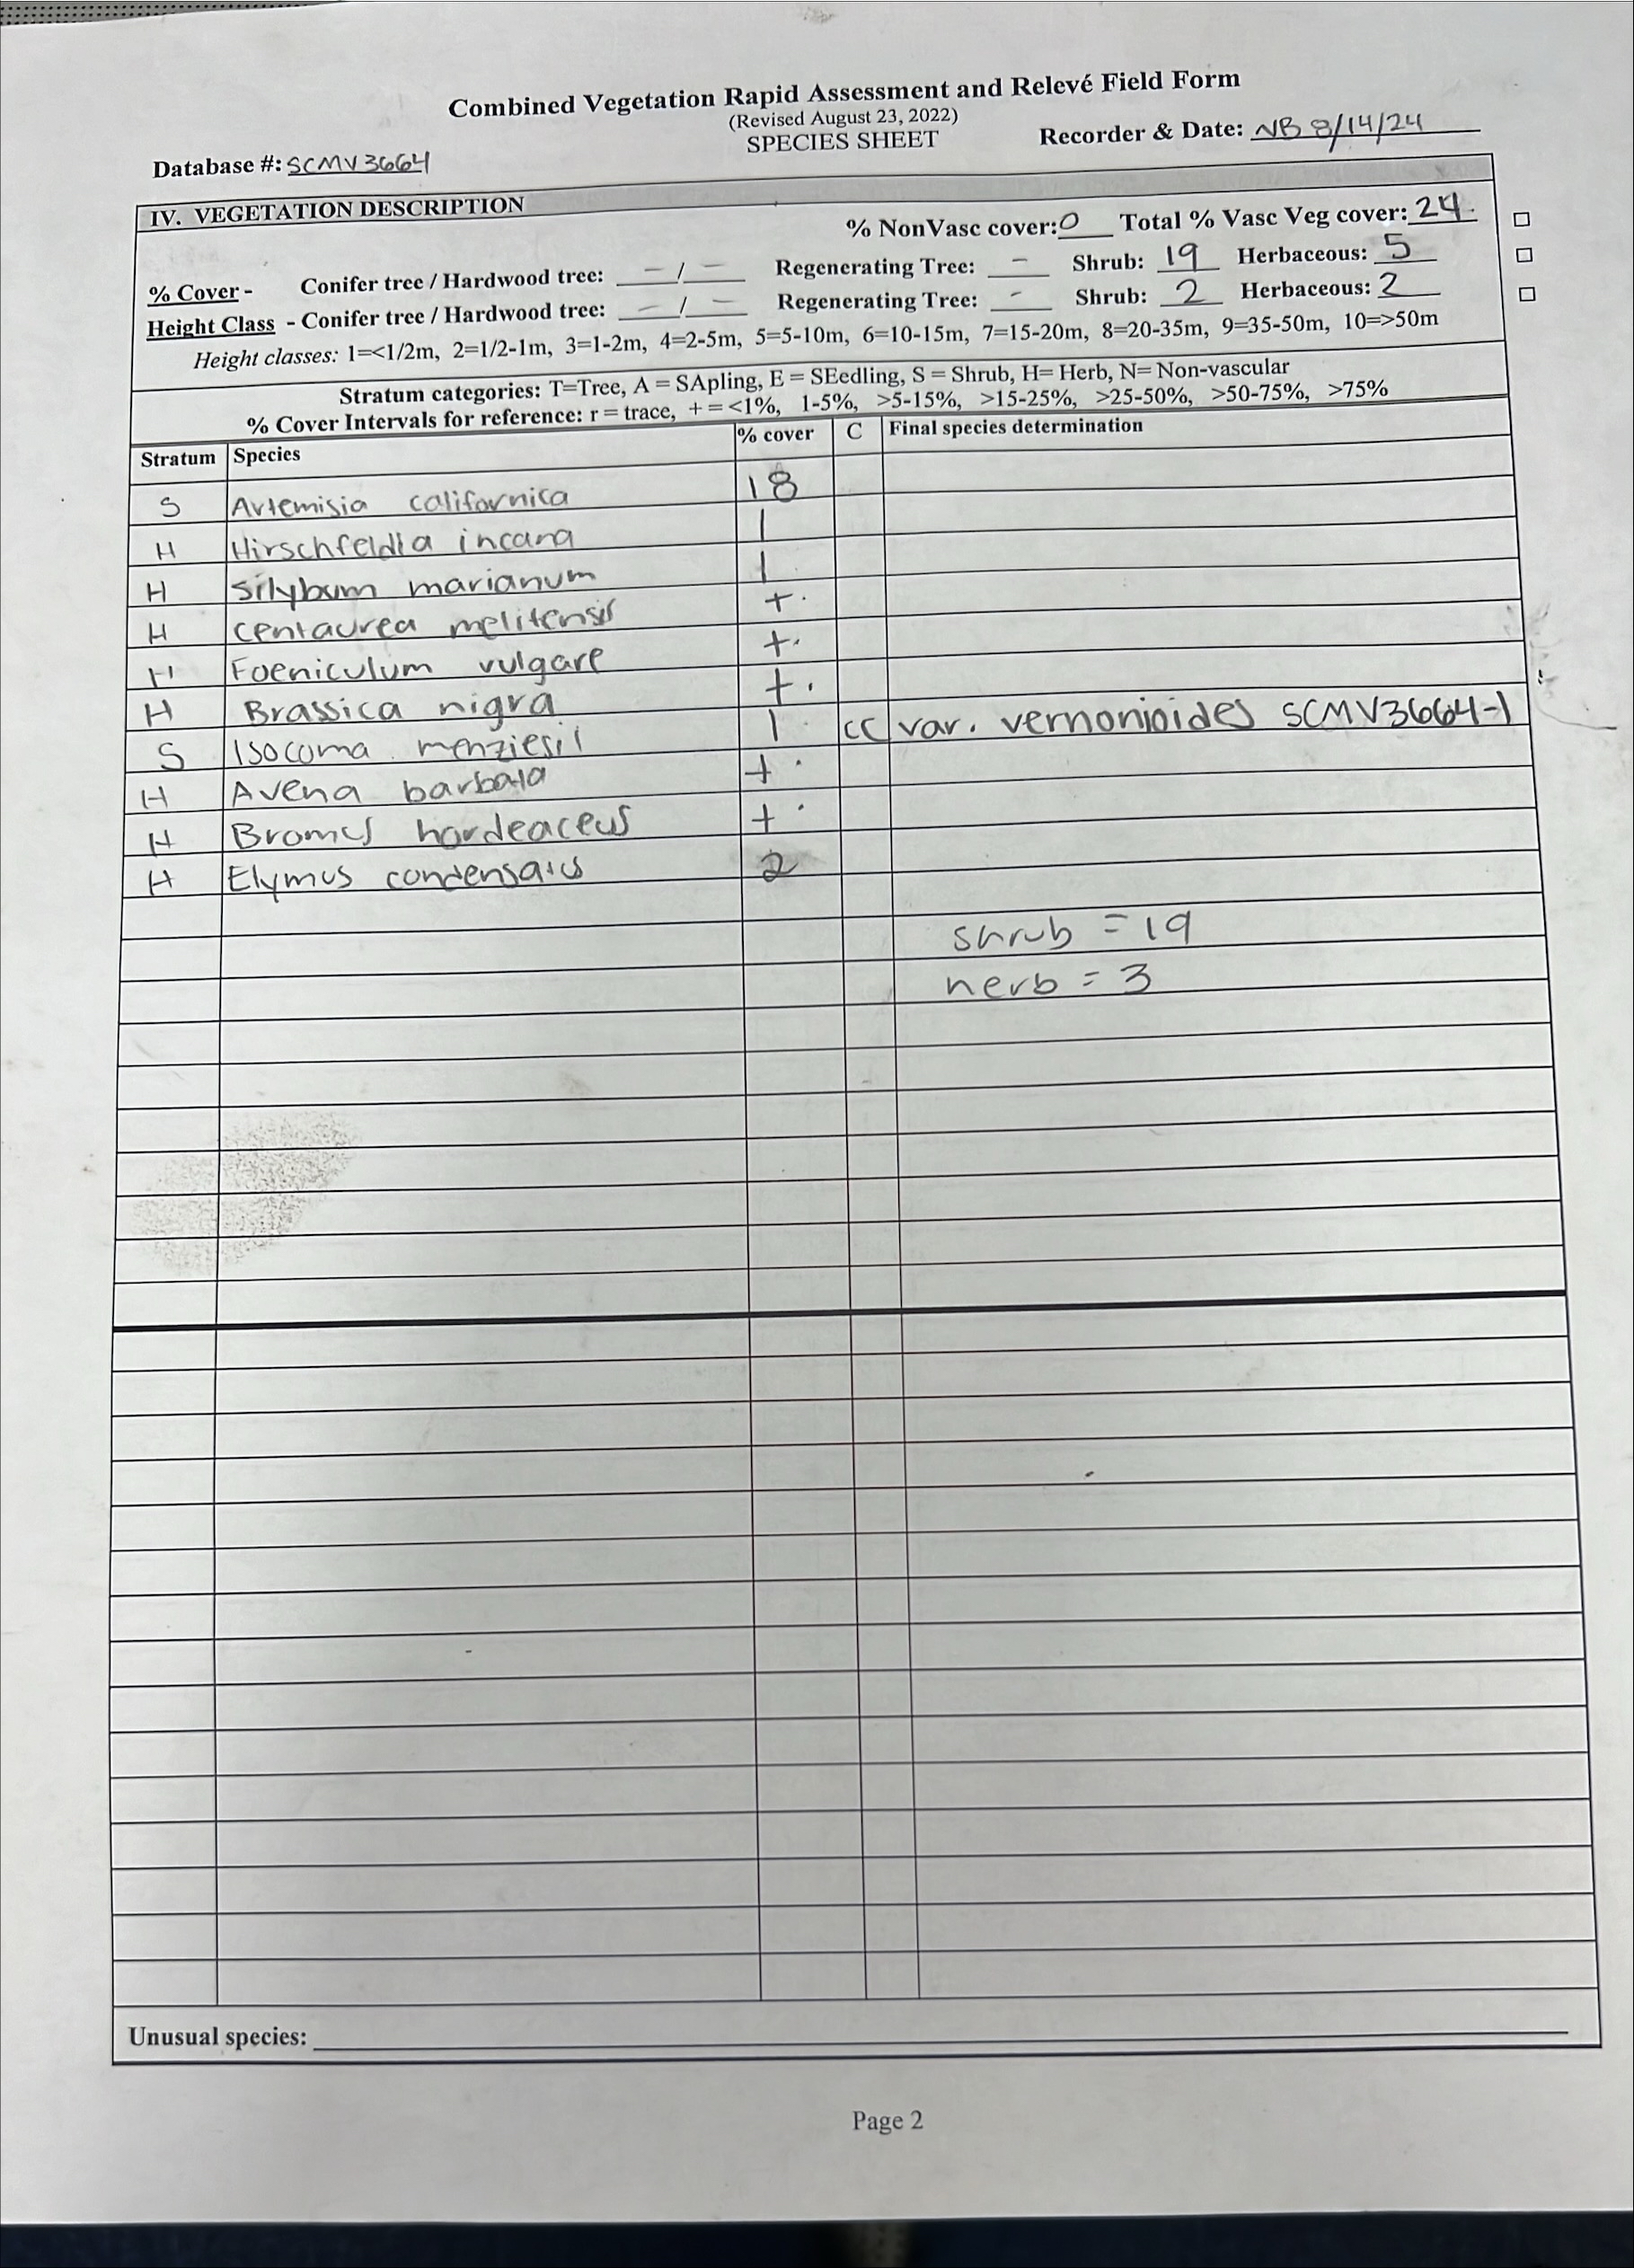 Combined Vegetation Rapid Assessment and Relevé Field Form
(Revised August 23, 2022)
SPECIES SHEET
Recorder & Date: NB 8/14/24
Database #: SCMV3664
IV. VEGETATION DESCRIPTION
% NonVasc cover: 0 Total % Vasc Veg cover: 24
% Cover - Conifer tree / Hardwood tree: - / - Regenerating Tree: - Shrub: 19 Herbaceous: 5
Height Class - Conifer tree / Hardwood tree: - / - Regenerating Tree: - Shrub: 2 Herbaceous: 2
Height classes: 1=<1/2m, 2=1/2-1m, 3=1-2m, 4=2-5m, 5=5-10m, 6=10-15m, 7=15-20m, 8=20-35m, 9=35-50m, 10=>50m
Stratum categories: T=Tree, A = SApling, E = SEedling, S = Shrub, H= Herb, N= Non-vascular
% Cover Intervals for reference: r = trace, + = <1%, 1-5%, >5-15%, >15-25%, >25-50%, >50-75%, >75%
Stratum Species % cover C Final species determination
S Artemisia californica 18
H Hirschfeldia incana 1
H Silybum marianum 1
H Centaurea melitensis +
H Foeniculum vulgare +
H Brassica nigra +
S Isocoma menziesii 1 CC var. vernonioides SCMV3664-1
H Avena barbata +
H Bromus hordeaceus +
H Elymus condensatus 2
shrub = 19
herb = 3
Unusual species:
Page 2